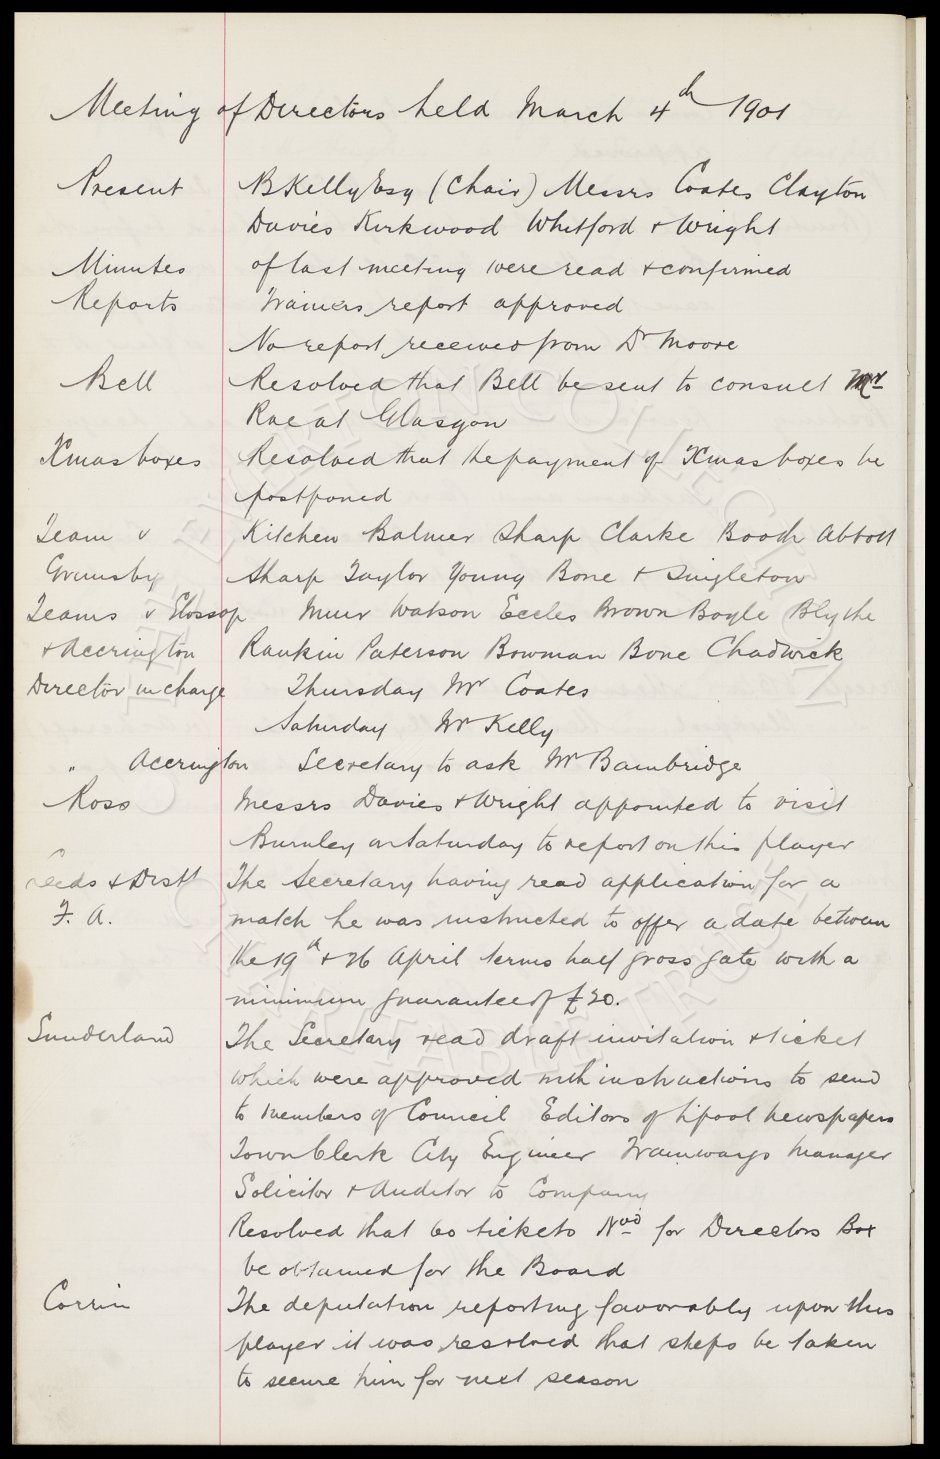 Meeting of Directors held March 4th 1901
Present B Kelly Esq (Chair) Messrs Coates Clayton
Davies Kirkwood Whitford & Wright
Minutes of last meeting were read & confirmed
Reports Trainers report approved
No report received from Dr Moore
Bell Resolved that Bell be sent to consult Mr
Rae at Glasgow
Xmas boxes Resolved that the payment of Xmas boxes be
postponed
Team v Kitchen Balmer Sharp Clarke Booth Abbott
Grimsby Sharp Taylor Young Bone & Singleton
Teams v Glossop Muir Watson Eccles Brown Boyle Blythe
& Accrington Rankin Paterson Bowman Bone Chadwick
Director in charge Thursday Mr Coates
Saturday Mr Kelly
" Accrington Secretary to ask Mr Bainbridge
Ross Messrs Davies & Wright appointed to visit
Burnley on Saturday to report on this player
Leeds & Distt The Secretary having read application for a
F. A. match he was instructed to offer a date between
the 19th & 26 April terms half gross gate with a
minimum guarantee of £20.
Sunderland The Secretary read draft invitation & ticket
which were approved with instructions to send
to members of Council Editors of Lpool Newspapers
Town Clerk City Engineer Tramways Manager
Solicitor & Auditor to Company
Resolved that 60 tickets Nod for Directors Box
be obtained for the Board
Corrin The deputation reporting favorably upon this
player it was resolved that steps be taken
to secure him for next season